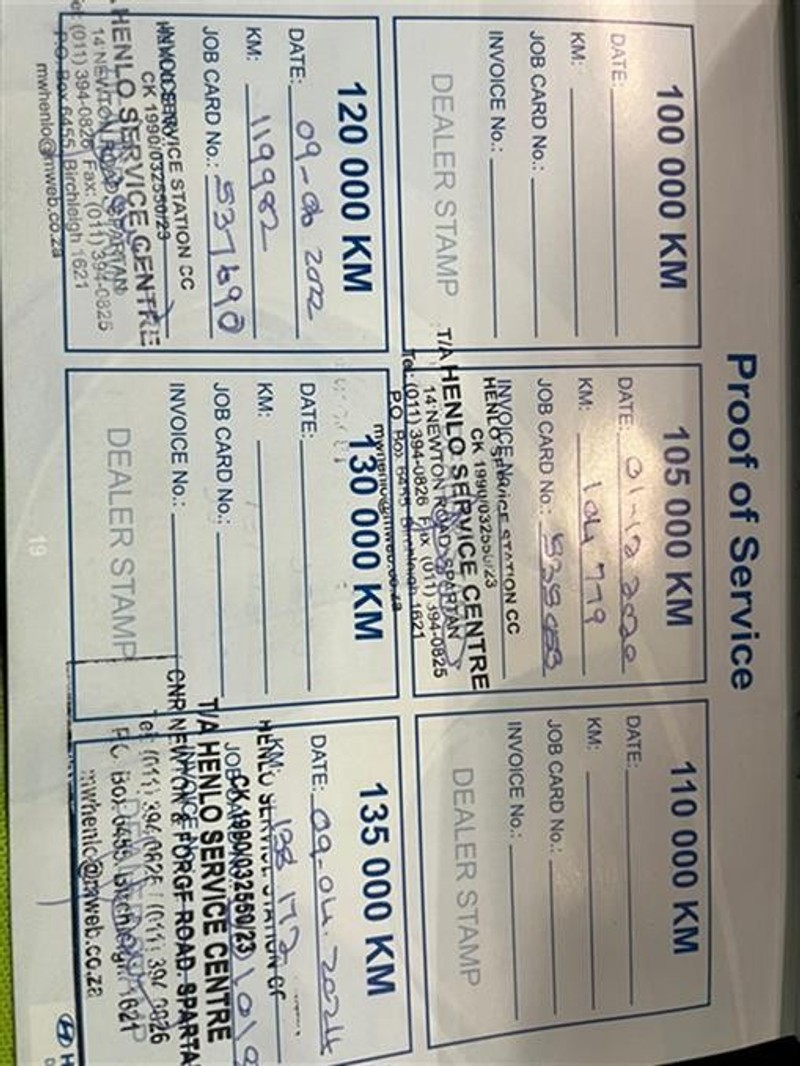 Proof of Service
100 000 KM
DATE:
KM:
JOB CARD No.:
INVOICE No.:
DEALER STAMP
105 000 KM
DATE: 01-12 2020
KM: 104 779
JOB CARD No.:
INVOICE No.:
HENLO SERVICE STATION CC
CK 1990/032550/23
T/A HENLO SERVICE CENTRE
14 NEWTON ROAD, SPARTAN
Tel: (011) 394-0826 Fax (011) 394-0825
P.O. Box 6455, Birchleigh 1621
mwhenlo@mweb.co.za
110 000 KM
DATE:
KM:
JOB CARD No.:
INVOICE No.:
DEALER STAMP
120 000 KM
DATE: 09-06 2022
KM: 119982
JOB CARD No.: 537690
INVOICE No.:
SERVICE STATION CC
CK 1990/032550/23
HENLO SERVICE CENTRE
14 NEWTON ROAD, SPARTAN
Tel: (011) 394-0826 Fax: (011) 394-0825
P.O. Box 6455, Birchleigh 1621
mwhenlo@mweb.co.za
130 000 KM
DATE:
KM:
JOB CARD No.:
INVOICE No.:
DEALER STAMP
135 000 KM
DATE: 09-04-2024
KM: 138 172
HENLO SERVICE STATION CC
CK 1990/032550/23
T/A HENLO SERVICE CENTRE
CNR NEWTON & FORGE ROAD. SPARTA
Tel: (011) 394 0825 / (011) 394 0826
PO Box 6455, Birchleigh, 1621
mwhenlo@mweb.co.za
19
H